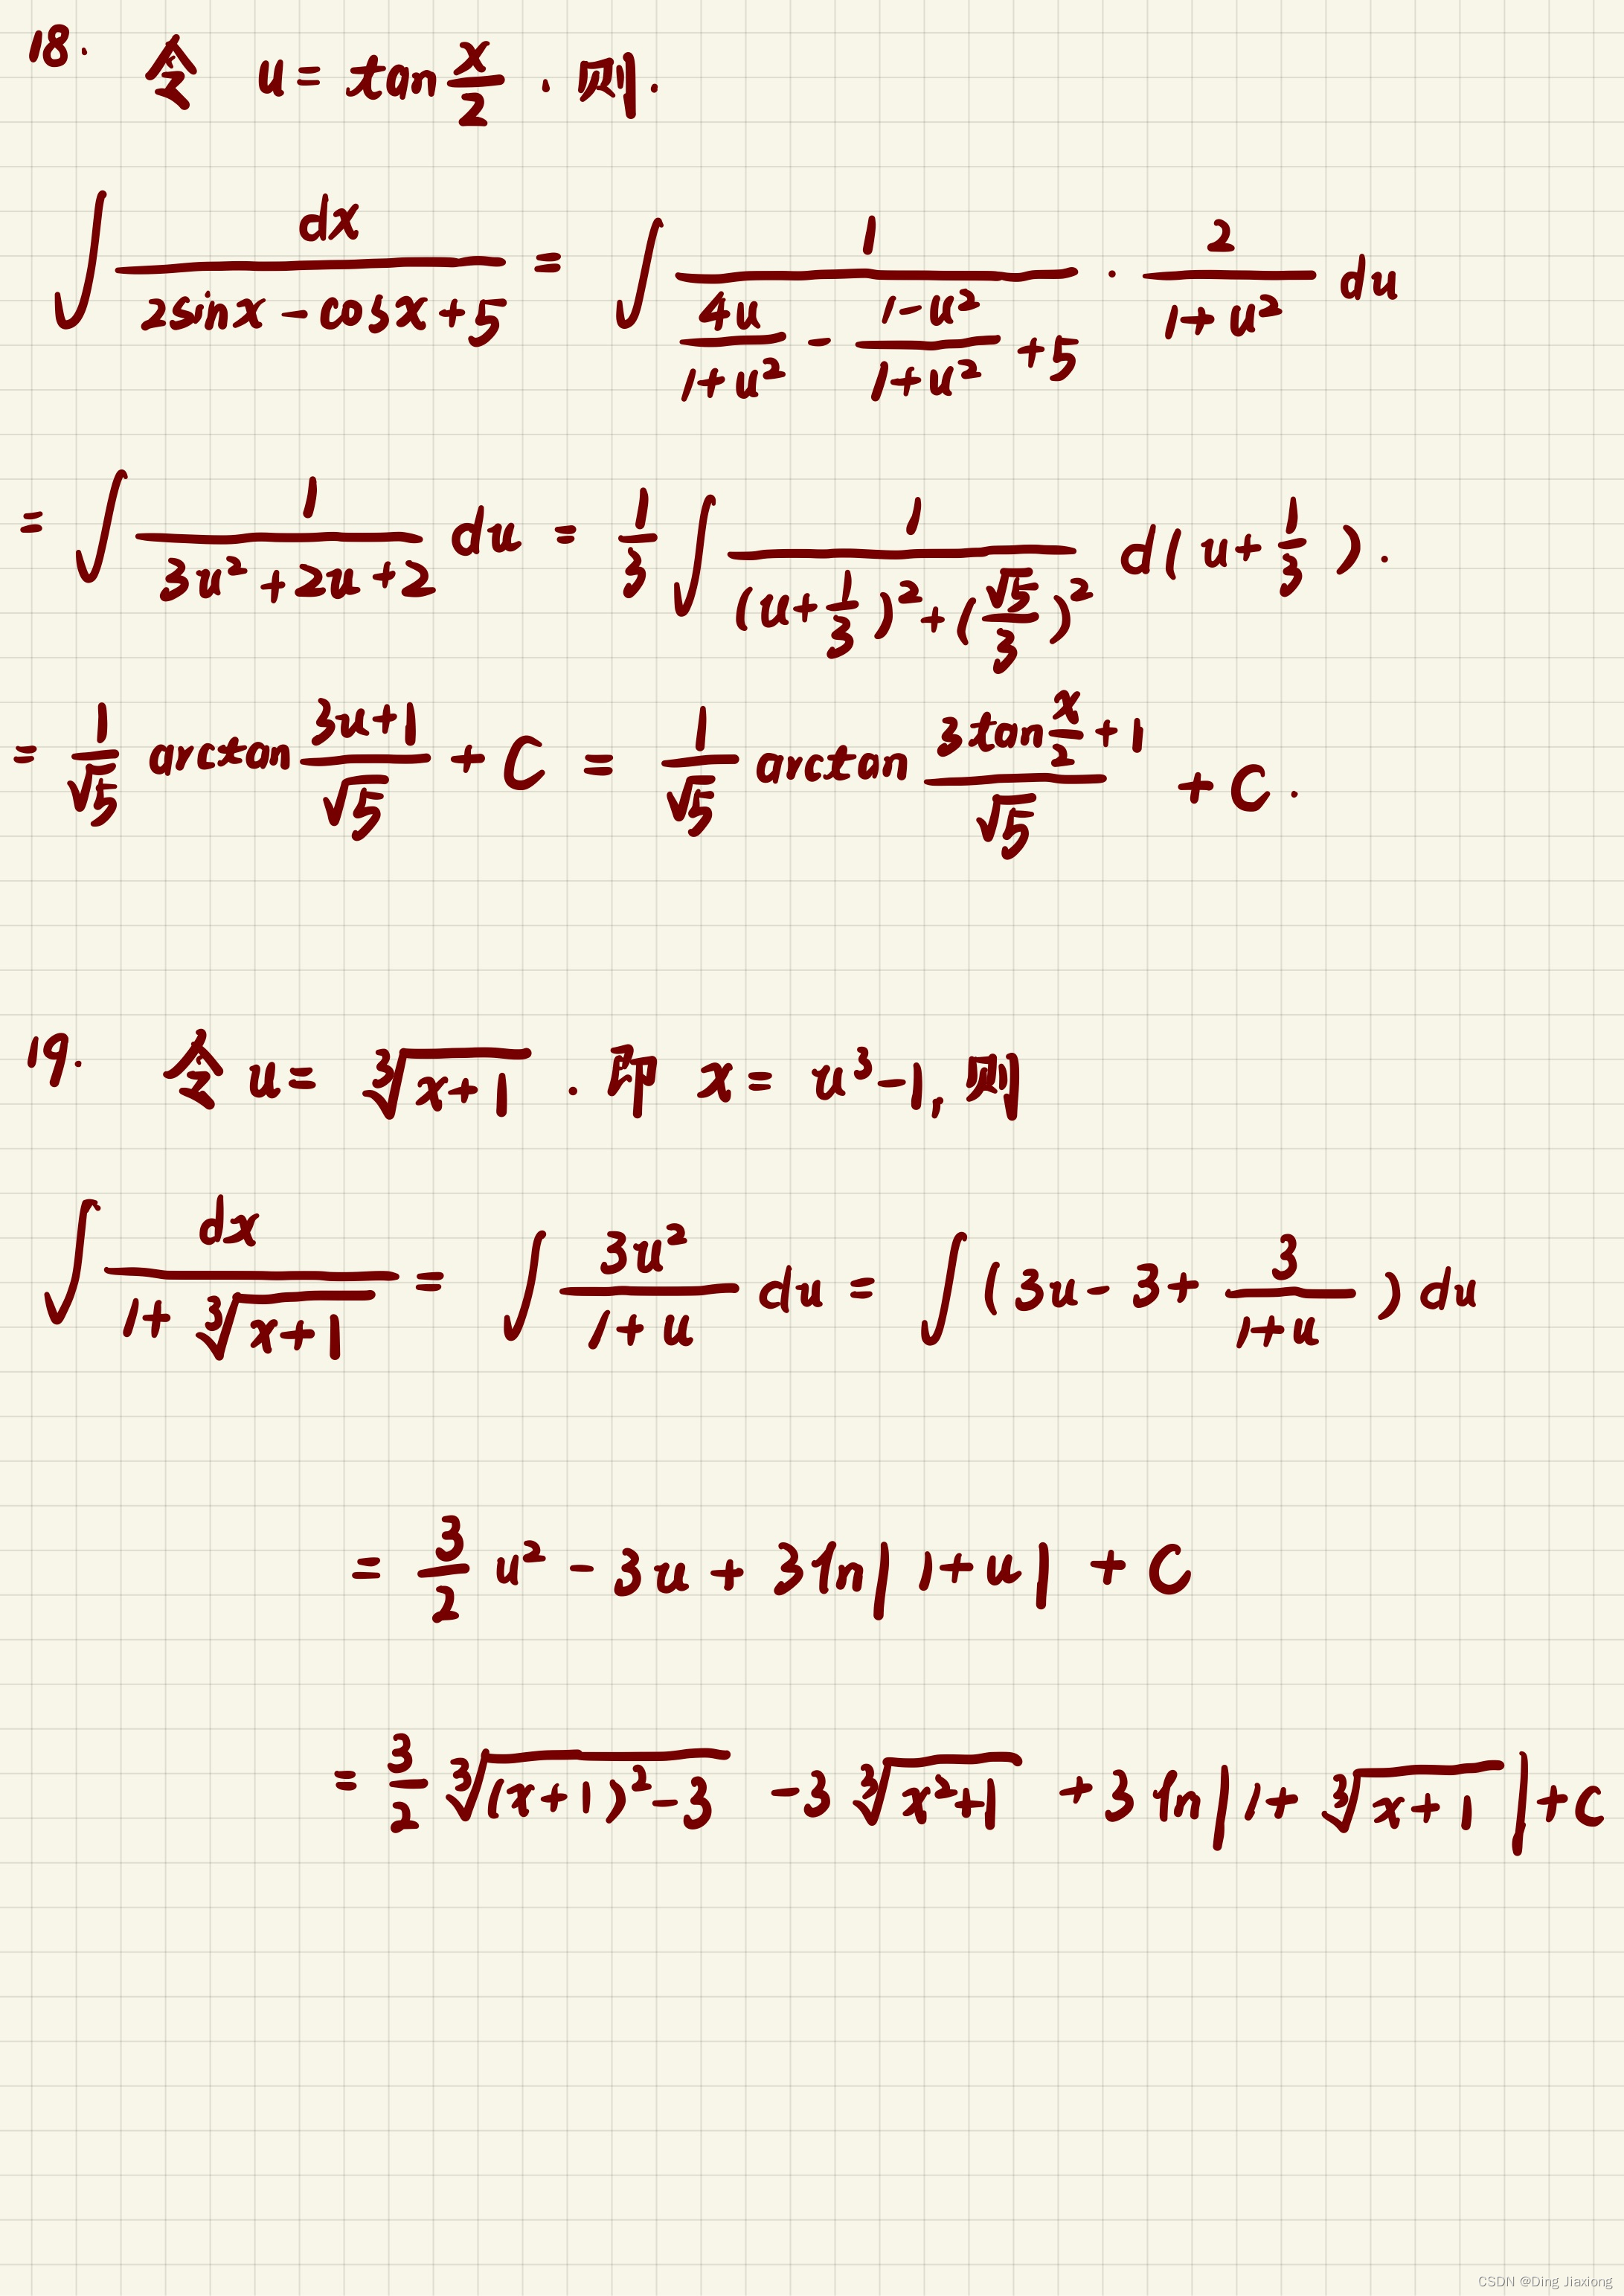 18. 令 u = tan x/2 . 则.
∫ dx/(2sinx - cosx + 5) = ∫ 1/(4u/(1+u²) - (1-u²)/(1+u²) + 5) · 2/(1+u²) du
= ∫ 1/(3u²+2u+2) du = 1/3 ∫ 1/((u+1/3)²+(√5/3)²) d(u+1/3).
= 1/√5 arctan (3u+1)/√5 + C = 1/√5 arctan (3tan x/2 + 1)/√5 + C.
19. 令 u = ∛(x+1) . 即 x = u³-1, 则
∫ dx/(1+∛(x+1)) = ∫ 3u²/(1+u) du = ∫ (3u-3+3/(1+u)) du
= 3/2 u² - 3u + 3ln|1+u| + C
= 3/2 ∛((x+1)²-3) -3∛(x²+1) + 3ln|1+∛(x+1)| + C
CSDN @Ding Jiaxiong